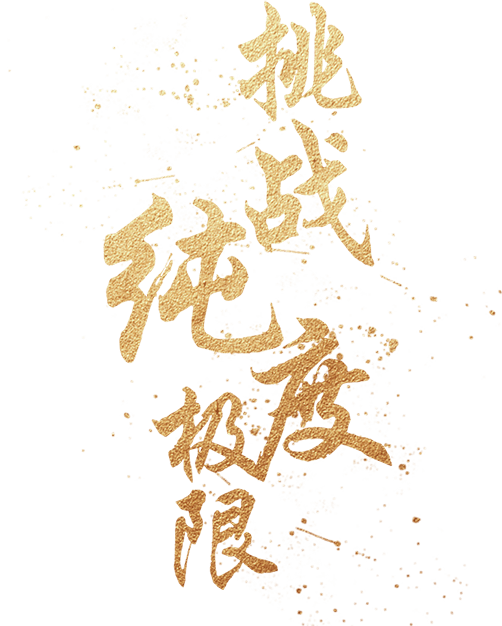 挑战
纯度
极限